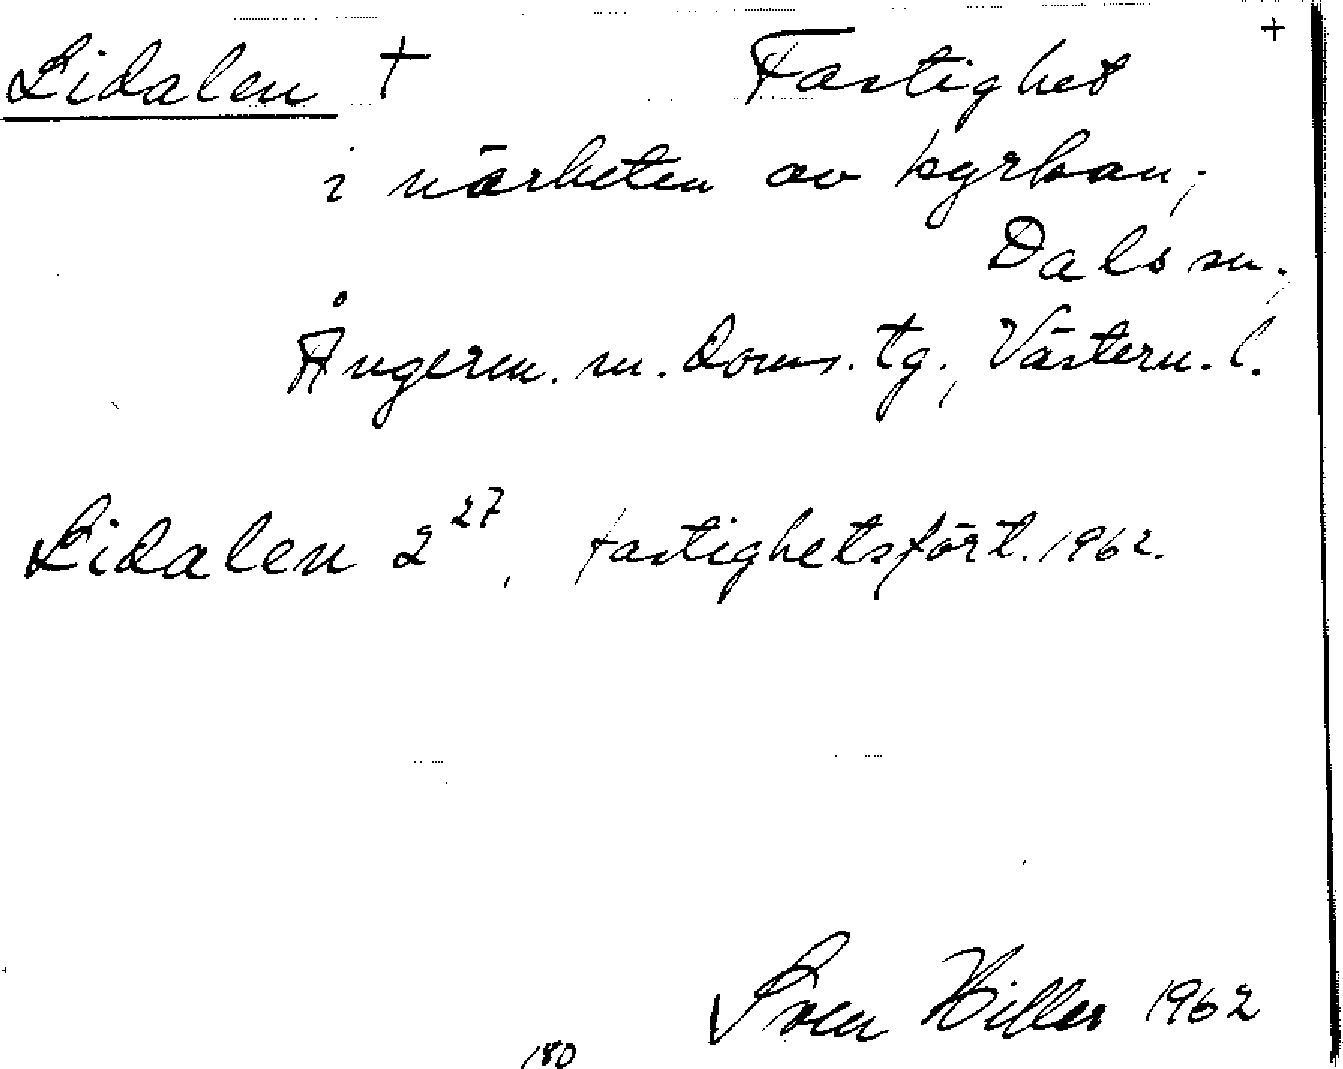 Lidalen + Fastighet +
i närheten av kyrkan,
Dals sn.,
Ångerm. m. doms. tg., Västern. l.
Lidalen 2²⁷, fastighetsfört. 1962.
Sven Hiller 1962
180